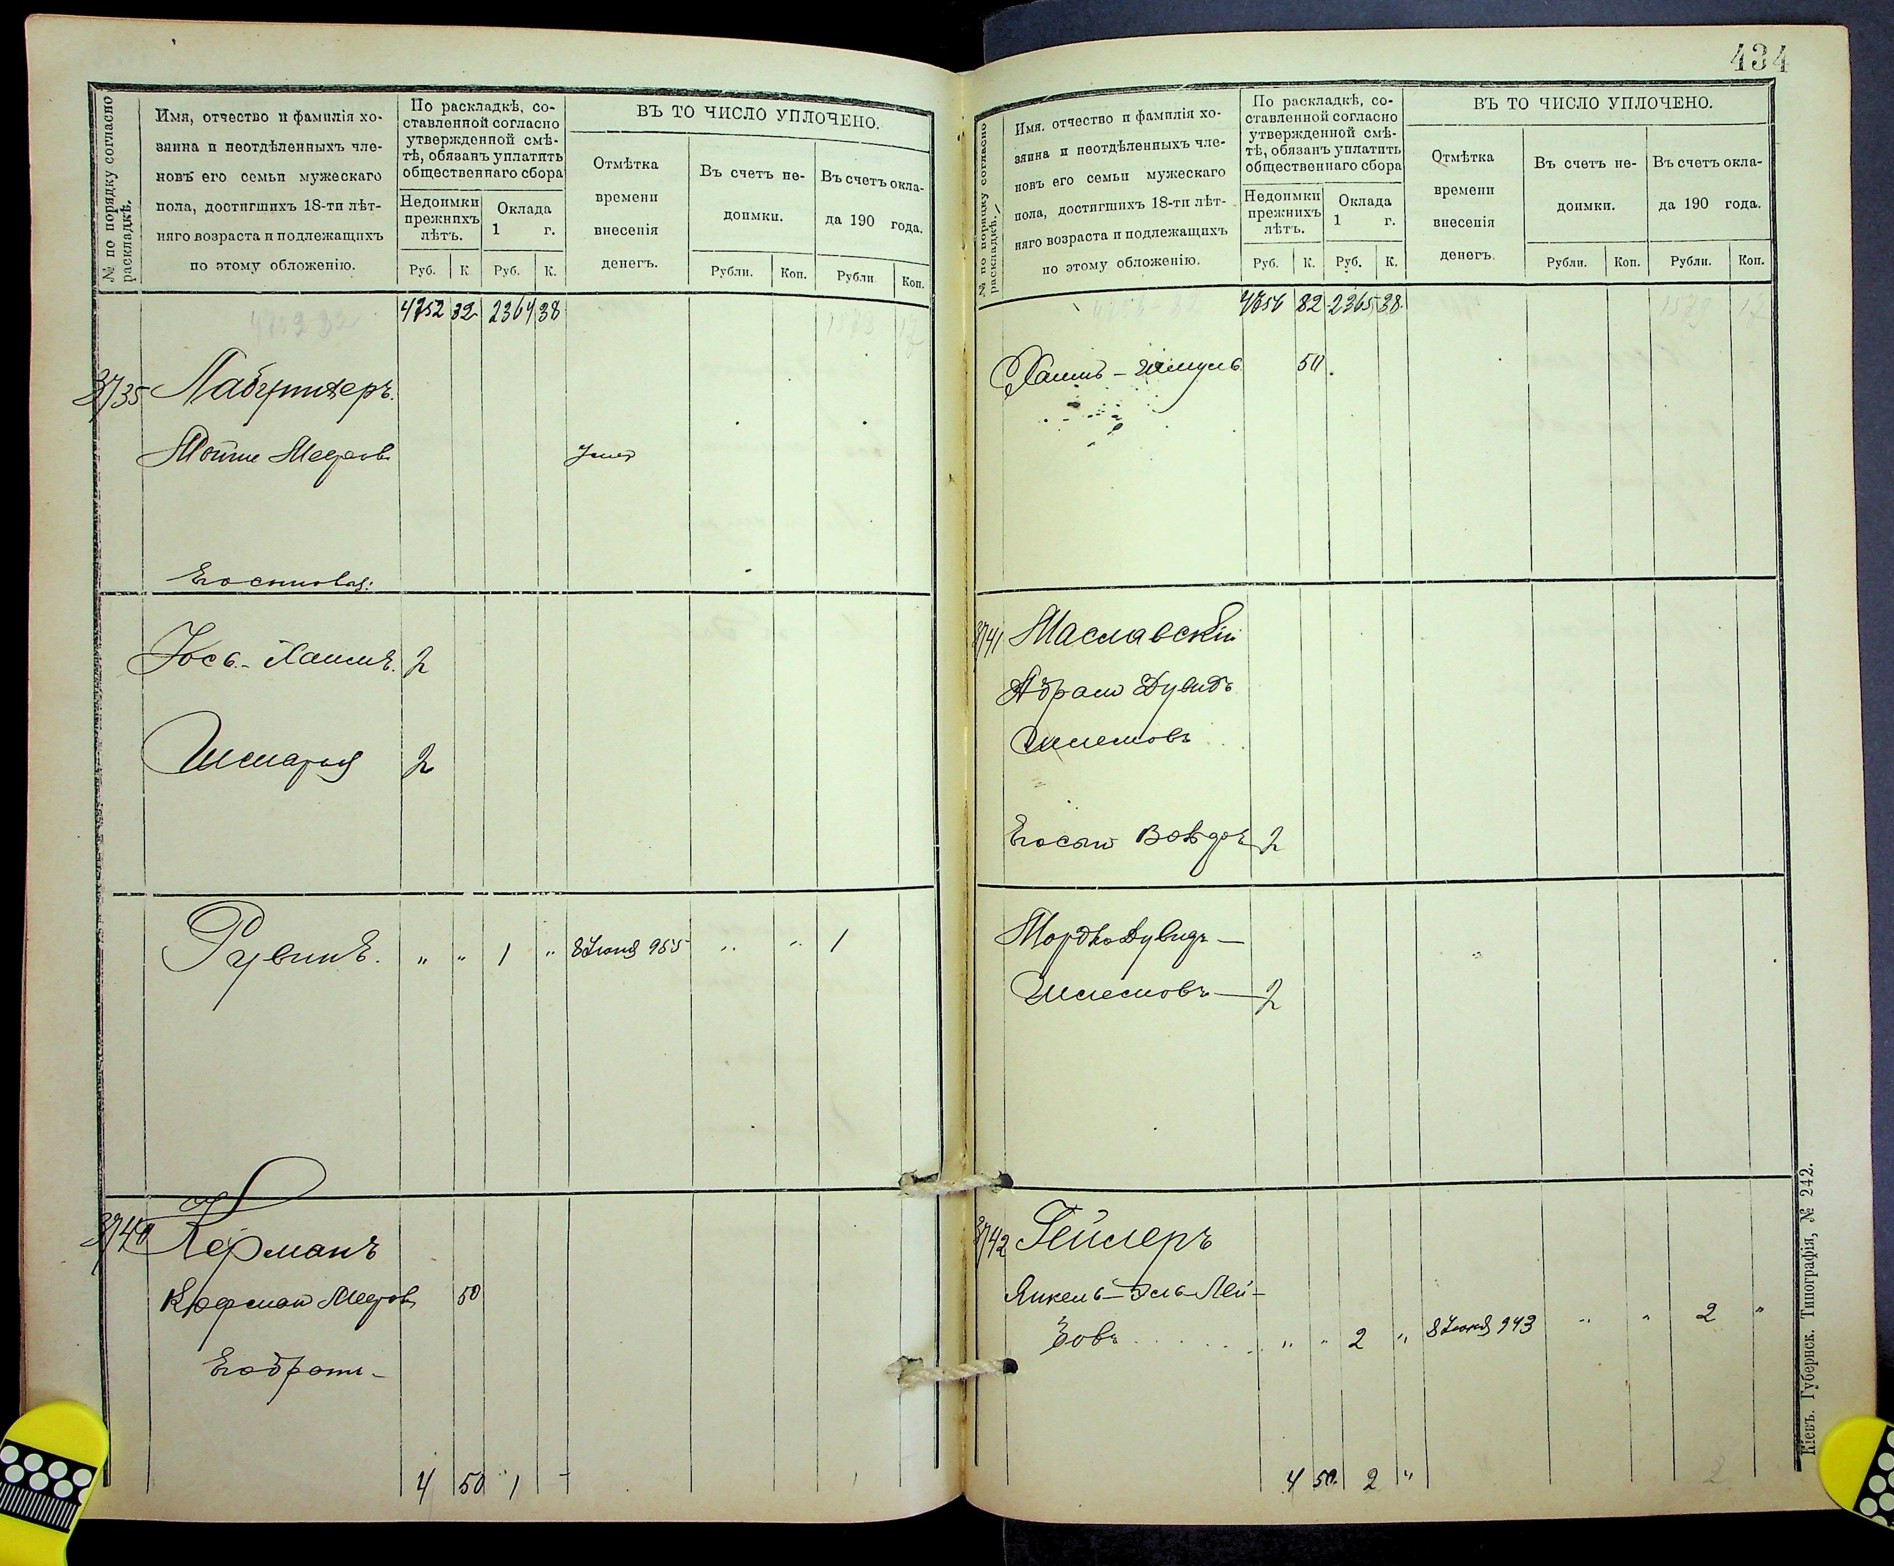 № по порядку согласно раскладкѣ.
Имя, отчество и фамилія хо-
зяина и неотдѣленныхъ чле-
новъ его семьи мужескаго
пола, достигшихъ 18-ти лѣт-
няго возраста и подлежащихъ
по этому обложенію.
По раскладкѣ, со-
ставленной согласно
утвержденной смѣ-
тѣ, обязанъ уплатить
общественнаго сбора
Недоимки
прежнихъ
лѣтъ.
Оклада
1 г.
Руб. К. Руб. К.
ВЪ ТО ЧИСЛО УПЛОЧЕНО.
Отмѣтка
времени
внесенія
денегъ.
Въ счетъ не-
доимки.
Рубли. Коп.
Въ счетъ окла-
да 190 года.
Рубли Коп.
4752 32 2364 38
3735
Мошко Мееровъ
Его сыновья:
Іось-Хаимъ 2
Шмарья 2
Рувинъ. " " 1 " 8 Іюня 955 " " 1
3740 Керманъ
Мееров 50
Его братъ-
4 50 1 -
434
№ по порядку согласно раскладкѣ.
Имя, отчество и фамилія хо-
зяина и неотдѣленныхъ чле-
новъ его семьи мужескаго
пола, достигшихъ 18-ти лѣт-
няго возраста и подлежащихъ
по этому обложенію.
По раскладкѣ, со-
ставленной согласно
утвержденной смѣ-
тѣ, обязанъ уплатить
общественнаго сбора
Недоимки
прежнихъ
лѣтъ.
Оклада
1 г.
Руб. К. Руб. К.
ВЪ ТО ЧИСЛО УПЛОЧЕНО.
Отмѣтка
времени
внесенія
денегъ.
Въ счетъ не-
доимки.
Рубли. Коп.
Въ счетъ окла-
да 190 года.
Рубли. Коп.
4756 82 2365 38
Хаимъ - 50
3741 Маславскій
Абрам Дувидъ
Шлемовъ
Его сын 2
Мордко Дувидъ —
Шлемовъ — 2
3742 Гейлеръ
Янкель-Эль-Лей-
бовъ " " 2 " 8 Іюня 943 " " 2 "
4 50 2 "
2
Кіевъ. Губернск. Типографія, № 242.